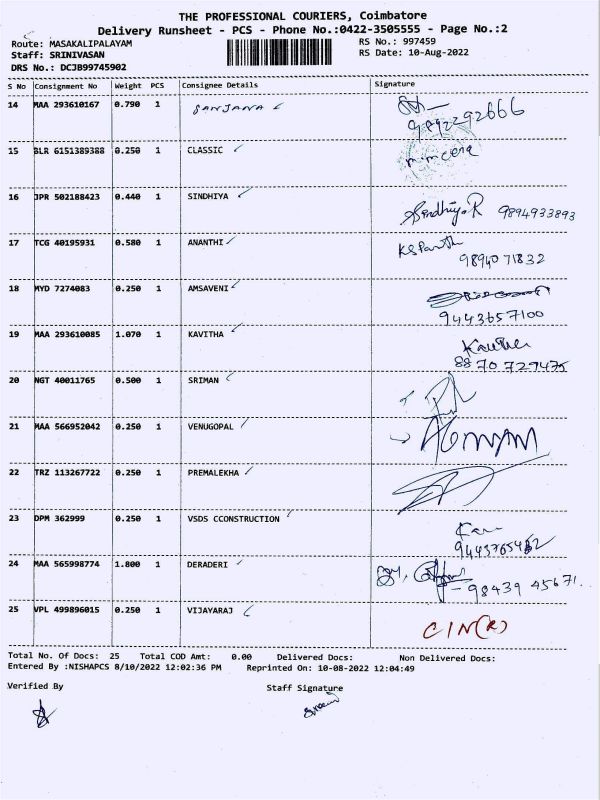 THE PROFESSIONAL COURIERS, Coimbatore
Delivery Runsheet - PCS - Phone No.:0422-3505555 - Page No.:2
Route: MASAKALIPALAYAM RS No.: 997459
Staff: SRINIVASAN RS Date: 10-Aug-2022
DRS No.: DCJB99745902
S No Consignment No Weight PCS Consignee Details Signature
14 MAA 293610167 0.790 1 SANJANA
9892292666
15 BLR 6151389388 0.250 1 CLASSIC
16 JPR 502188423 0.440 1 SINDHIYA
Sindhiya.R 9894933893
17 TCG 40195931 0.580 1 ANANTHI
9894071832
18 MYD 7274083 0.250 1 AMSAVENI
9443657100
19 MAA 293610085 1.070 1 KAVITHA
8870729475
20 NGT 40011765 0.500 1 SRIMAN
21 MAA 566952042 0.250 1 VENUGOPAL
22 TRZ 113267722 0.250 1 PREMALEKHA
23 DPM 362999 0.250 1 VSDS CCONSTRUCTION
24 MAA 565998774 1.800 1 DERADERI
- 98439 45671
25 VPL 499896015 0.250 1 VIJAYARAJ
C/N(R)
Total No. Of Docs: 25 Total COD Amt: 0.00 Delivered Docs: Non Delivered Docs:
Entered By :NISHAPCS 8/10/2022 12:02:36 PM Reprinted On: 10-08-2022 12:04:49
Verified By Staff Signature